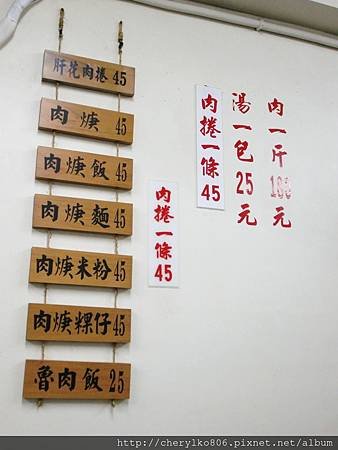 肝花肉捲45
肉焿45
肉焿飯45
肉焿麵45
肉焿米粉45
肉焿粿仔45
魯肉飯25
肉捲一條45
肉捲一條45
湯一包25元
肉一斤元
http://cherylko806.pixnet.net/album